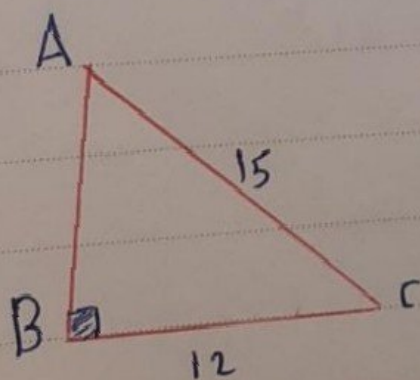 A
15
B
C
12